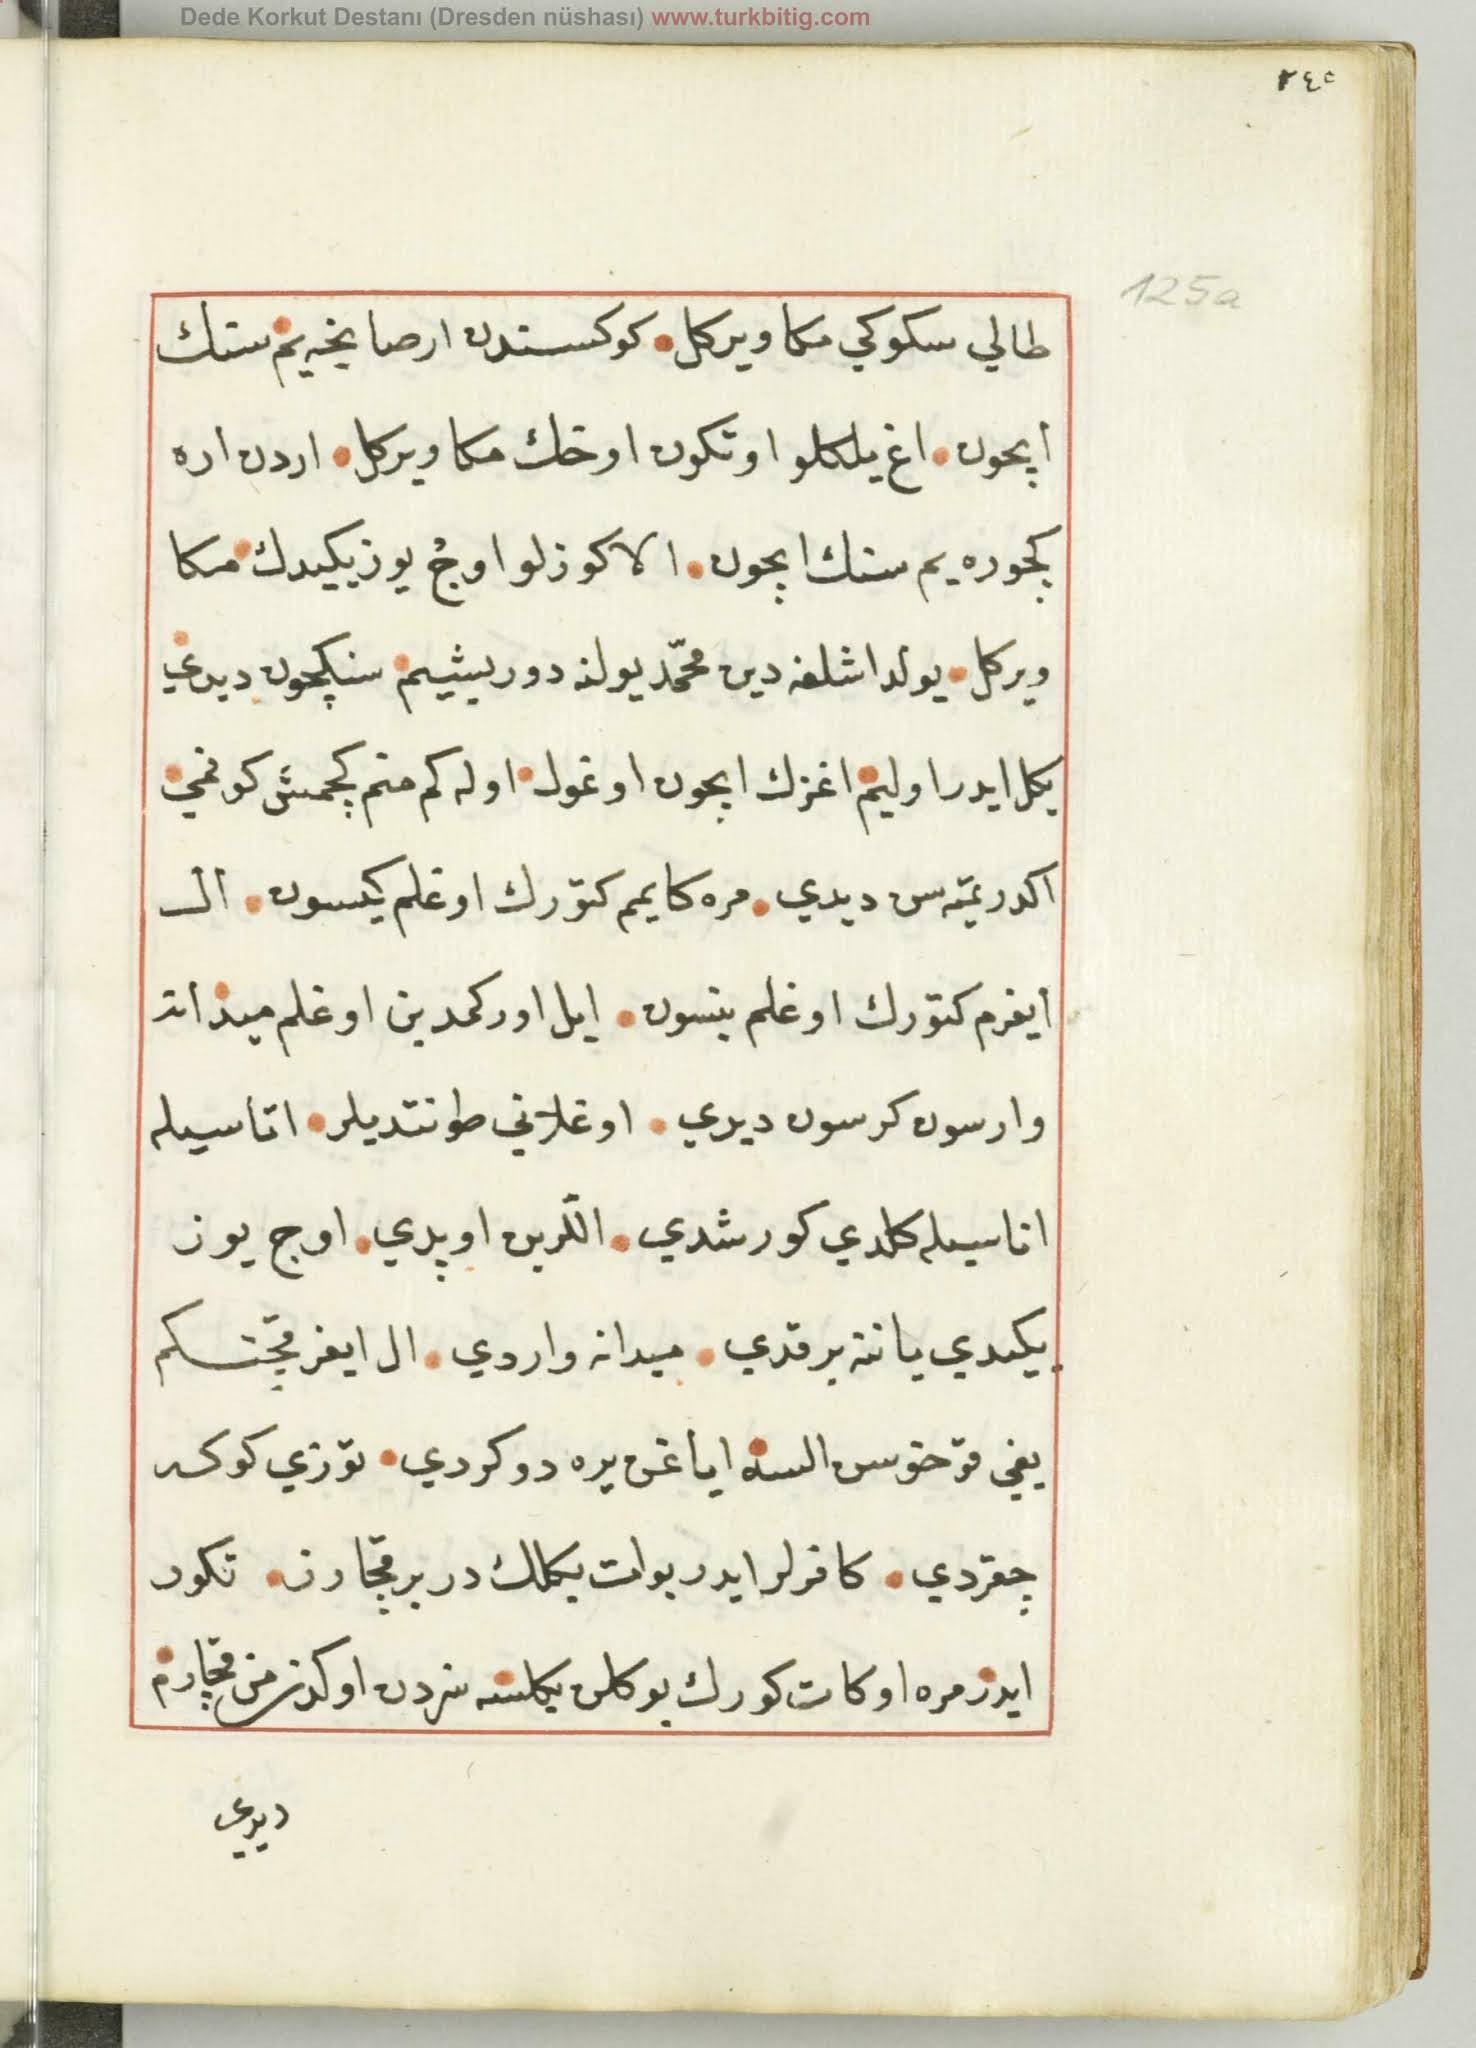 Dede Korkut Destanı (Dresden nüshası) www.turkbitig.com
٢٤٥
125a
طالي سكوكي مكا ويركل كوكسندن ارصايخه يم سنك
اپچون اغ يلكلو اوتكون اوخك مكا ويركل اردن اره
كچوره يم سنك اپچون الا كوزلو اوچ يوز يكيدك مكا
ويركل يولداشلغه دين محمّد يولنه دوريشيم سنكچون ديدي
بكل ايدر اوليم اغزك اپچون اوغول اوله كم منم كچمش كونمي
اكدريته س ديدي مره كايمم كتورك اوغلم كيسون أل
أيغرم كتورك اوغلم بنسون ايل اوركمدين اوغلم ميدانه
وارسون كرسون ديدي اوغلاني طوننتديلر اتاسيله
اناسيله كلدي كورشدي اللرين اوپدي اوچ يوز
يكيدي ياننه برقدي ميدانه واردي ال ايغر قچنكم
يغي قوخوسن السه اياغن يره دوكردي توزي كوكه
چقردي كافرلر ايدر بوات بكلك در بز قچارز تكور
ايدر مره اوكات كورك بو كلن بكلسه سزدن اوكدن من قچارم
ديدي